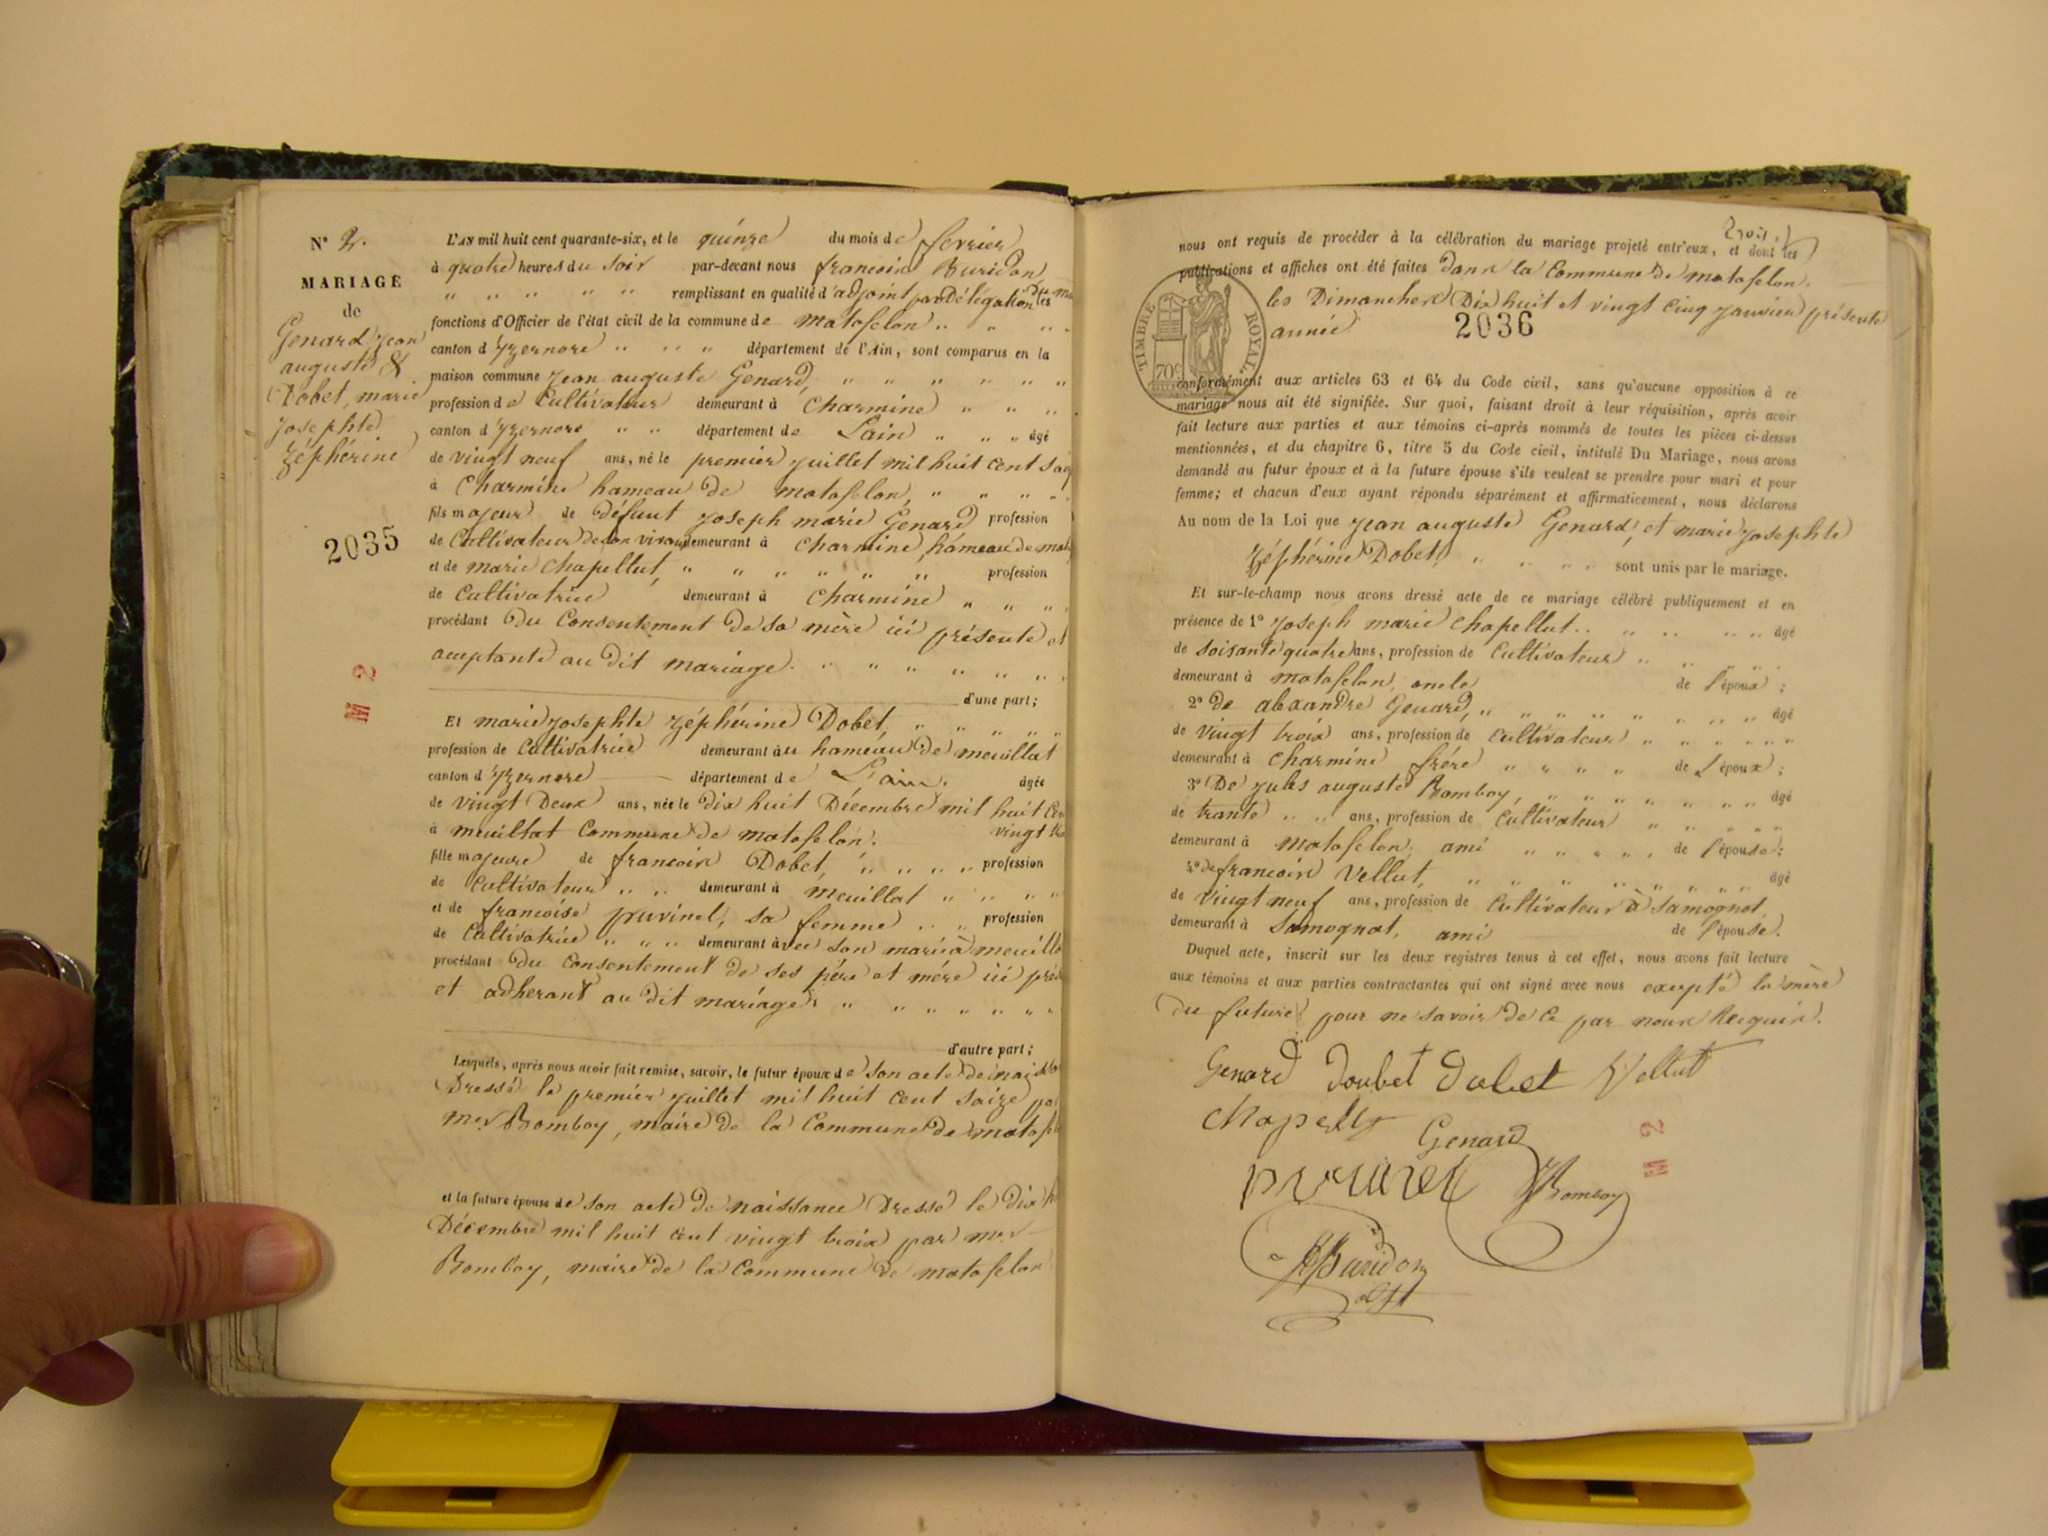 N° 2.
MARIAGE
de
Genard Jean
auguste &
Dobet, marie
josephte
Zéphérine
2035
M 2
L'AN mil huit cent quarante-six, et le quinze du mois de fevrier
à quatre heures du soir par-devant nous francois Buridon
" " " " " remplissant en qualité d'adjoint par délégation du les
fonctions d'Officier de l'état civil de la commune de matafelon " " "
canton d'Yzernore " " " département de l'Ain, sont comparus en la
maison commune jean auguste Genard, " " " " " "
profession de Cultivateur demeurant à Charmine " " "
canton d'Yzernore " " département de L'ain " " " âgé
de vingt neuf ans, né le premier juillet mil huit cent
à Charmine hameau de matafelon, " " " "
fils majeur de défunt joseph marie Genard profession
de Cultivateur de son vivant demeurant à Charmine, hameau de
et de marie Chapellut, " " " " " " profession
de Cultivatrice demeurant à Charmine " " "
procédant Du Consentement De sa mère ici présente et
acceptante au Dit mariage. " " " " " "
d'une part;
Et marie josephte Zéphérine Dobet, " " " " "
profession de Cultivatrice demeurant au hameau de meuillat
canton d'Yzernore département de L'ain. âgée
de vingt Deux ans, née le Dix huit Décembre mil huit
à meuillat Commune de matafelon. vingt
fille majeure de francois Dobet, " " " " profession
de Cultivateur " " " demeurant à meuillat " " " "
et de francoise pruvinel, sa femme " " profession
de Cultivatrice " " " demeurant avec son mari à
procédant Du Consentement de ses père et mère ici
et adherant au Dit mariage. " " " " " "
d'autre part;
Lesquels, après nous avoir fait remise, savoir, le futur époux de son acte de
Dressé le premier juillet mil huit cent saize
mr Bomboy, maire de la Commune de
et la future épouse de son acte de naissance Dressé le Dix
Décembre mil huit cent vingt trois par mr
Bomboy, maire de la Commune de matafelon
nous ont requis de procéder à la célébration du mariage projeté entr'eux, et dont les
publications et affiches ont été faites dans la Commune de matafelon.
les Dimanches Dix huit et vingt cinq janvier présente
année
2036
TIMBRE ROYAL
70c
conformément aux articles 63 et 64 du Code civil, sans qu'aucune opposition à ce
mariage nous ait été signifiée. Sur quoi, faisant droit à leur réquisition, après avoir
fait lecture aux parties et aux témoins ci-après nommés de toutes les pièces ci-dessus
mentionnées, et du chapitre 6, titre 5 du Code civil, intitulé Du Mariage, nous avons
demandé au futur époux et à la future épouse s'ils veulent se prendre pour mari et pour
femme; et chacun d'eux ayant répondu séparément et affirmativement, nous déclarons
Au nom de la Loi que jean auguste Genard, et marie josephte
Zéphérine Dobet, " " " " sont unis par le mariage.
Et sur-le-champ nous avons dressé acte de ce mariage célébré publiquement et en
présence de 1° joseph marie Chapellut " " " " " âgé
de soisante quatre ans, profession de Cultivateur " " " " "
demeurant à matafelon, oncle de l'époux;
2° de alexandre Genard, " " " " " " " " âgé
de vingt trois ans, profession de cultivateur " " " " " "
demeurant à Charmine frère " " " " de l'époux;
3° De jules auguste Bomboy, " " " " " " " âgé
de trante " " ans, profession de Cultivateur " " " " "
demeurant à matafelon, ami " " " " " de l'épouse;
4° de francois Vellut, " " " " " " " " âgé
de vingt neuf ans, profession de Cultivateur à Samognat,
demeurant à Samognat, ami de l'épouse.
Duquel acte, inscrit sur les deux registres tenus à cet effet, nous avons fait lecture
aux témoins et aux parties contractantes qui ont signé avec nous excepté la mère
Du future pour ne savoir de ce par nous Requis.
Genard Doubet Dobet Vellut
Chapellut Genard
pruvinel JBomboy
Buridon
adjt
M 2